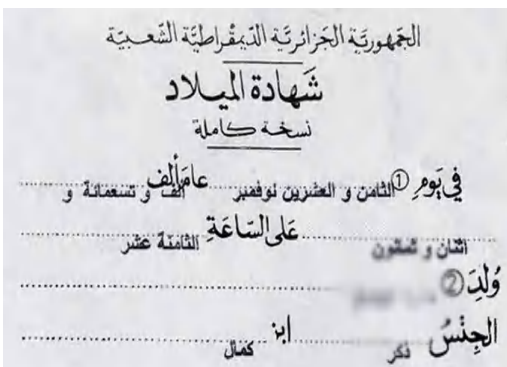 الجمهوريّة الجزائريّة الدّيمقراطيّة الشّعبيّة
شهادة الميلاد
نسخة كاملة
في يوم ① الثامن و العشرين نوفمبر عام ألف ألف و تسعمائة و
اثنان و ثمانون على السّاعة الثامنة عشر
وُلِدَ ②
الجِنْسُ ذكر ابن كمال